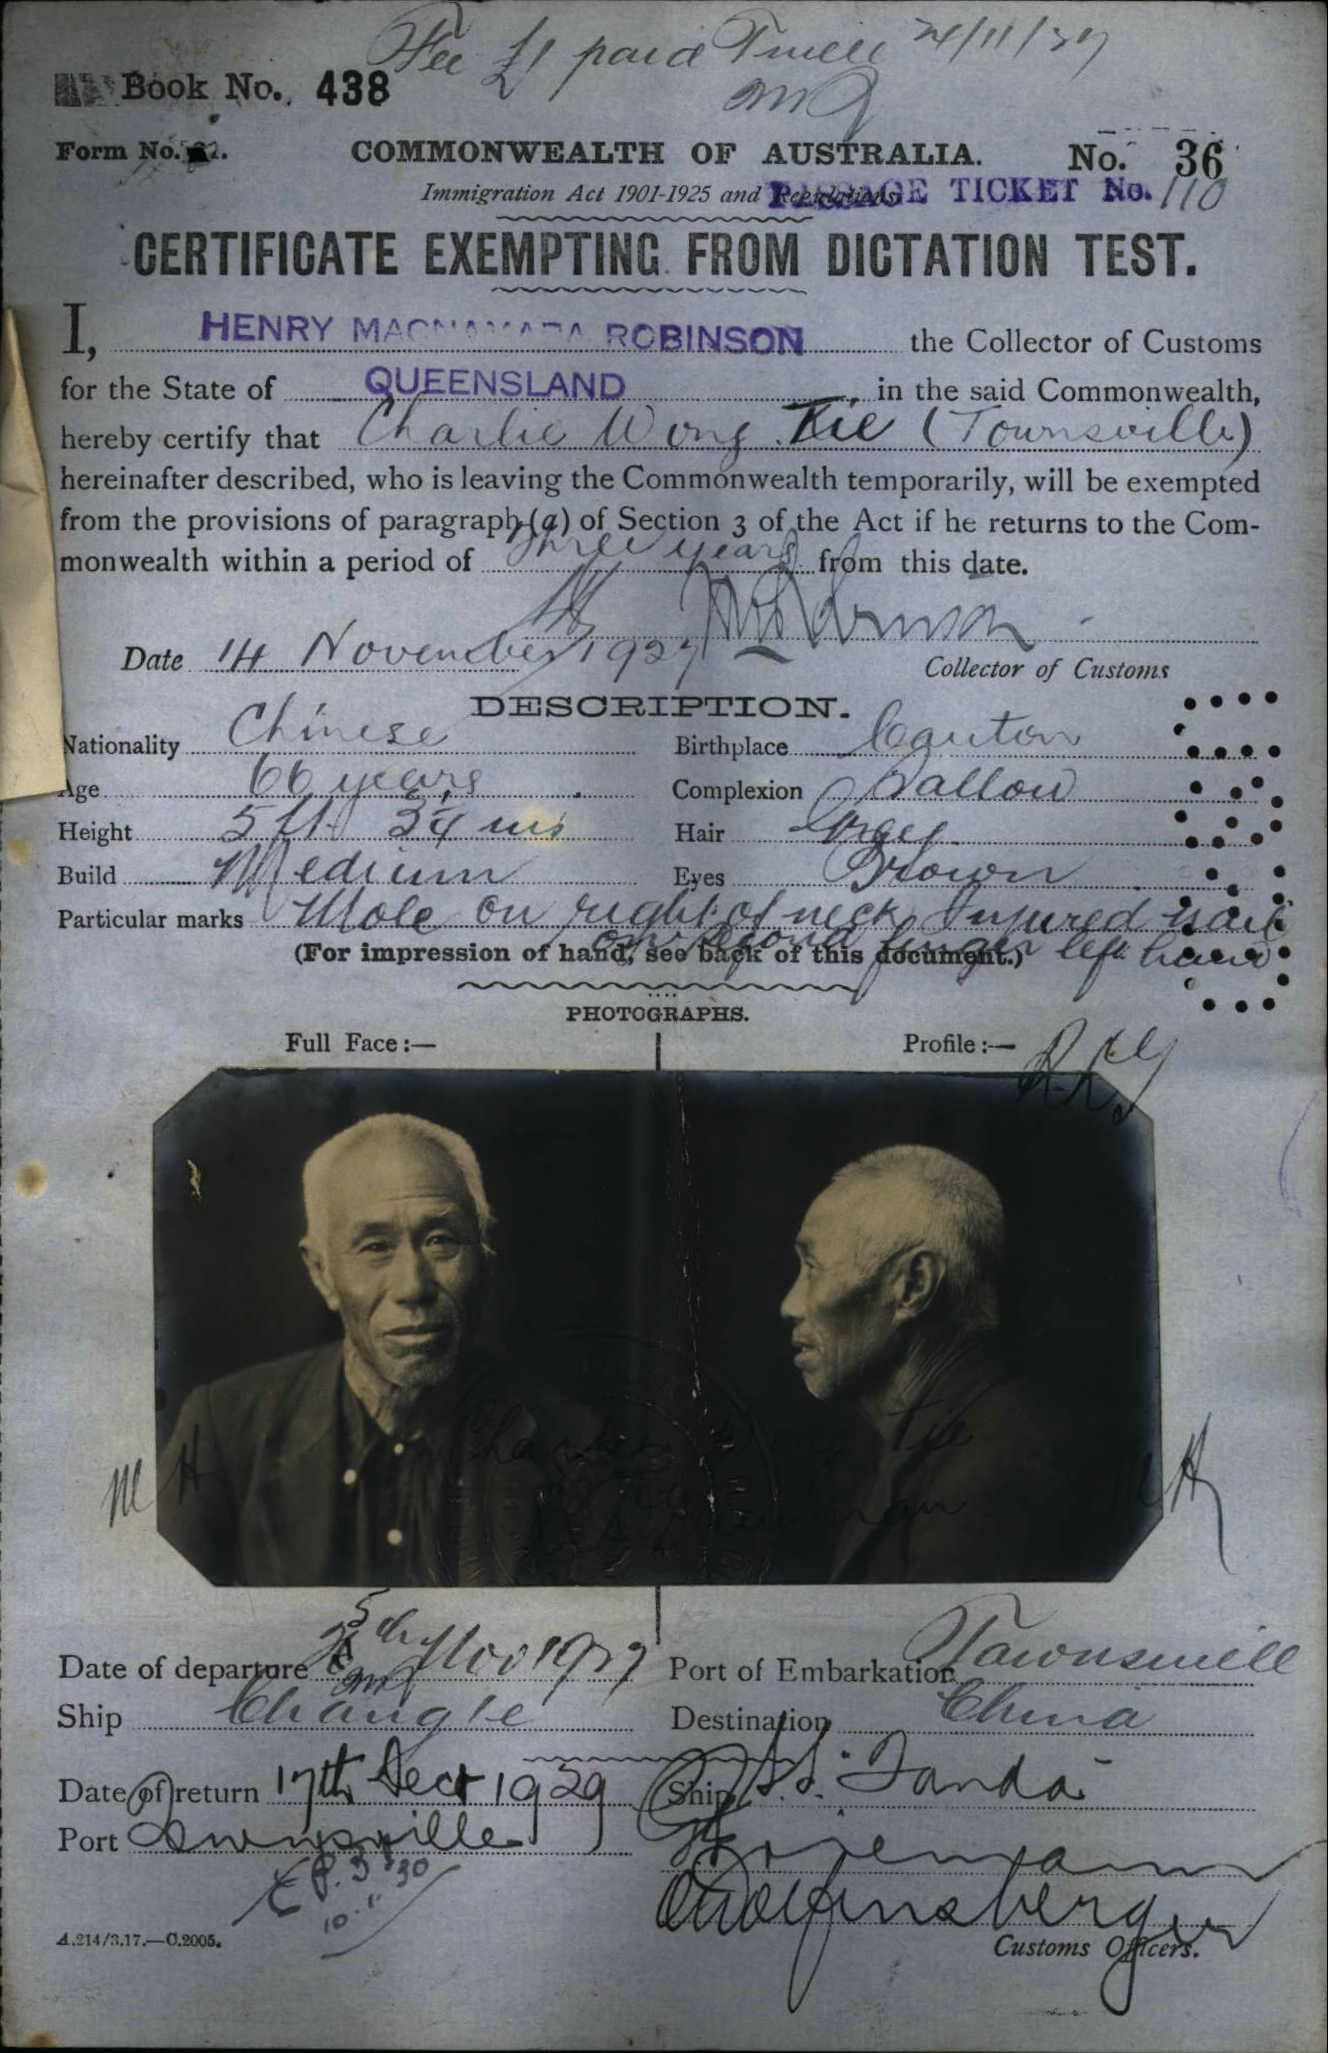 Fee £1 paid Tville 24/11/27
Book No. 438
Form No. 32.
COMMONWEALTH OF AUSTRALIA.
No. 36
Immigration Act 1901-1925 and Regulations
PASSAGE TICKET No. 110
CERTIFICATE EXEMPTING FROM DICTATION TEST.
I, HENRY MACNAMARA ROBINSON the Collector of Customs
for the State of QUEENSLAND in the said Commonwealth,
hereby certify that Charlie Wong Tie (Townsville)
hereinafter described, who is leaving the Commonwealth temporarily, will be exempted
from the provisions of paragraph (a) of Section 3 of the Act if he returns to the Com-
monwealth within a period of three years from this date.
HM Robinson
Date 14 November 1927
Collector of Customs
DESCRIPTION.
Nationality Chinese Birthplace Canton
Age 66 years Complexion Sallow
Height 5 ft. 3¼ ins Hair Grey
Build Medium Eyes Brown
Particular marks Mole on right of neck, Injured nail
on second finger left hand
(For impression of hand, see back of this document.)
PHOTOGRAPHS.
Full Face:— Profile:—
Charlie Wong Tie
M H
M H
Date of departure 25th Nov 1927 Port of Embarkation Townsville
Ship Changte Destination China
Date of return 17th Decr 1929 Ship S.S. Tanda
Port Townsville
C.P. 31/30
10.1.30
A.214/3.17.—C.2005.
Customs Officers.